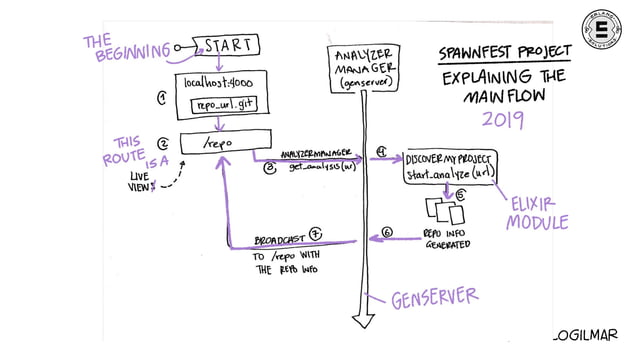 THE
BEGINNING
START
ANALYZER
MANAGER
(genserver)
SPAWNFEST PROJECT
EXPLAINING THE
MAIN FLOW
2019
ERLANG
SOLUTIONS
1
localhost:4000
repo_url.git
THIS
ROUTE
IS A
2
/repo
LIVE
VIEW
ANALYZERMANAGER
3
get_analysis(url)
4
DISCOVERMYPROJECT
start_analyze(url)
5
ELIXIR
MODULE
REPO INFO
GENERATED
6
BROADCAST 7
TO /repo WITH
THE REPO INFO
GENSERVER
LOGILMAR